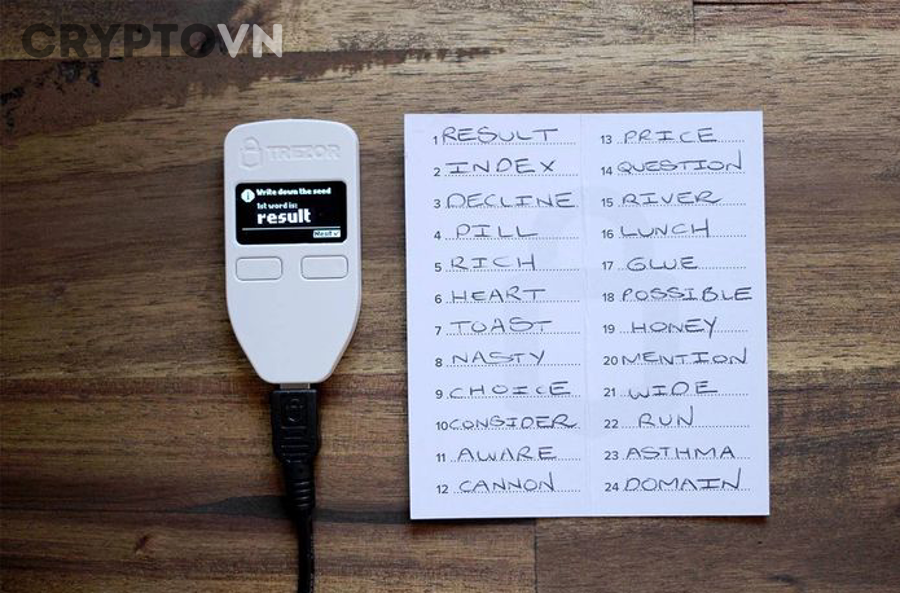 CRYPTOVN
TREZOR
Write down the seed
1st word is:
result
Next
1 RESULT
2 INDEX
3 DECLINE
4 PILL
5 RICH
6 HEART
7 TOAST
8 NASTY
9 CHOICE
10 CONSIDER
11 AWARE
12 CANNON
13 PRICE
14 QUESTION
15 RIVER
16 LUNCH
17 GLUE
18 POSSIBLE
19 HONEY
20 MENTION
21 WIDE
22 RUN
23 ASTHMA
24 DOMAIN